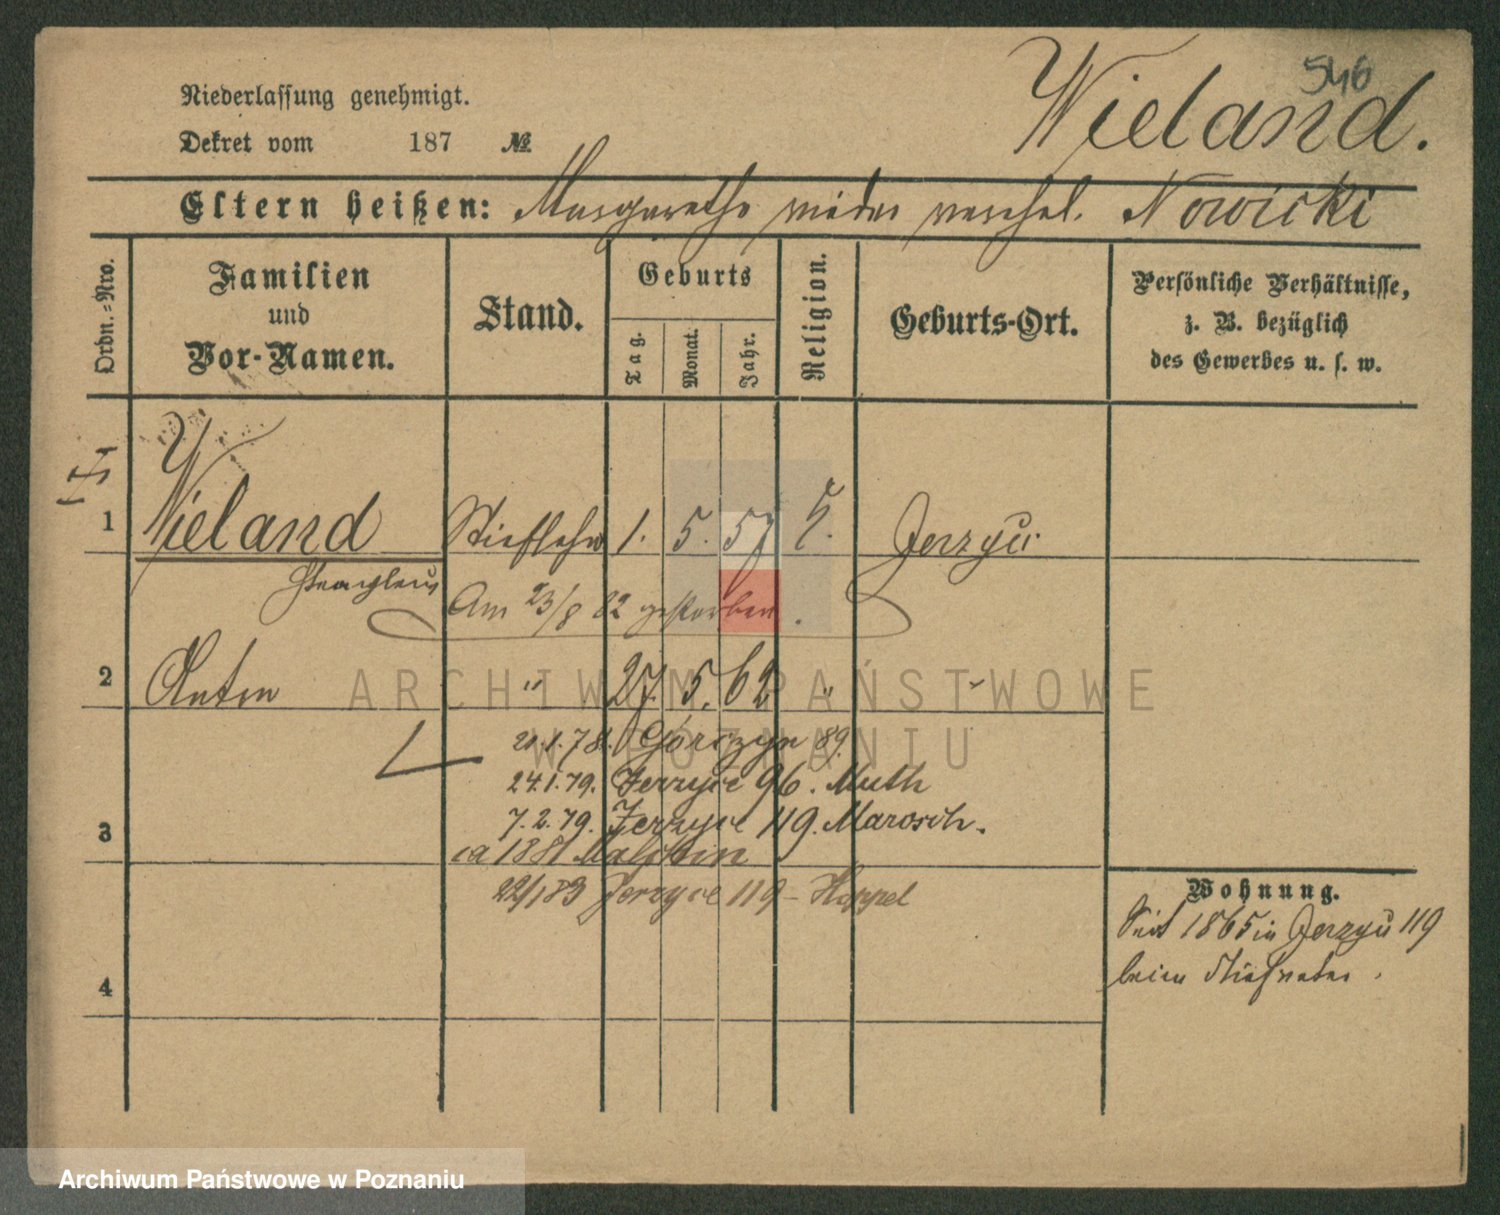 546
Wieland.
Niederlassung genehmigt.
Dekret vom 187 №
Eltern heißen: Margarethe wieder verehel. Nowicki
Ordn.-Nro.
Familien
und
Vor-Namen.
Stand.
Geburts
Tag.
Monat.
Jahr.
Religion.
Geburts-Ort.
Persönliche Verhältnisse,
z. B. bezüglich
des Gewerbes u. s. w.
1 Wieland Stiefsohn 1. 5. 57 k. Jerzyce
Am 23/8 82 gestorben.
2 Anton " 27. 5. 62 "
21.1.78. Górczyn 89.
24.1.79. Jerzyce 96. Muth
7.2.79. Jerzyce 119. Marosch.
3
ca 1881
22/1 83 Jerzyce 119 - Hoppel
Wohnung.
Seit 1865 in Jerzyce 119
beim Stiefvater.
4
ARCHIWUM PAŃSTWOWE
W POZNANIU
Archiwum Państwowe w Poznaniu